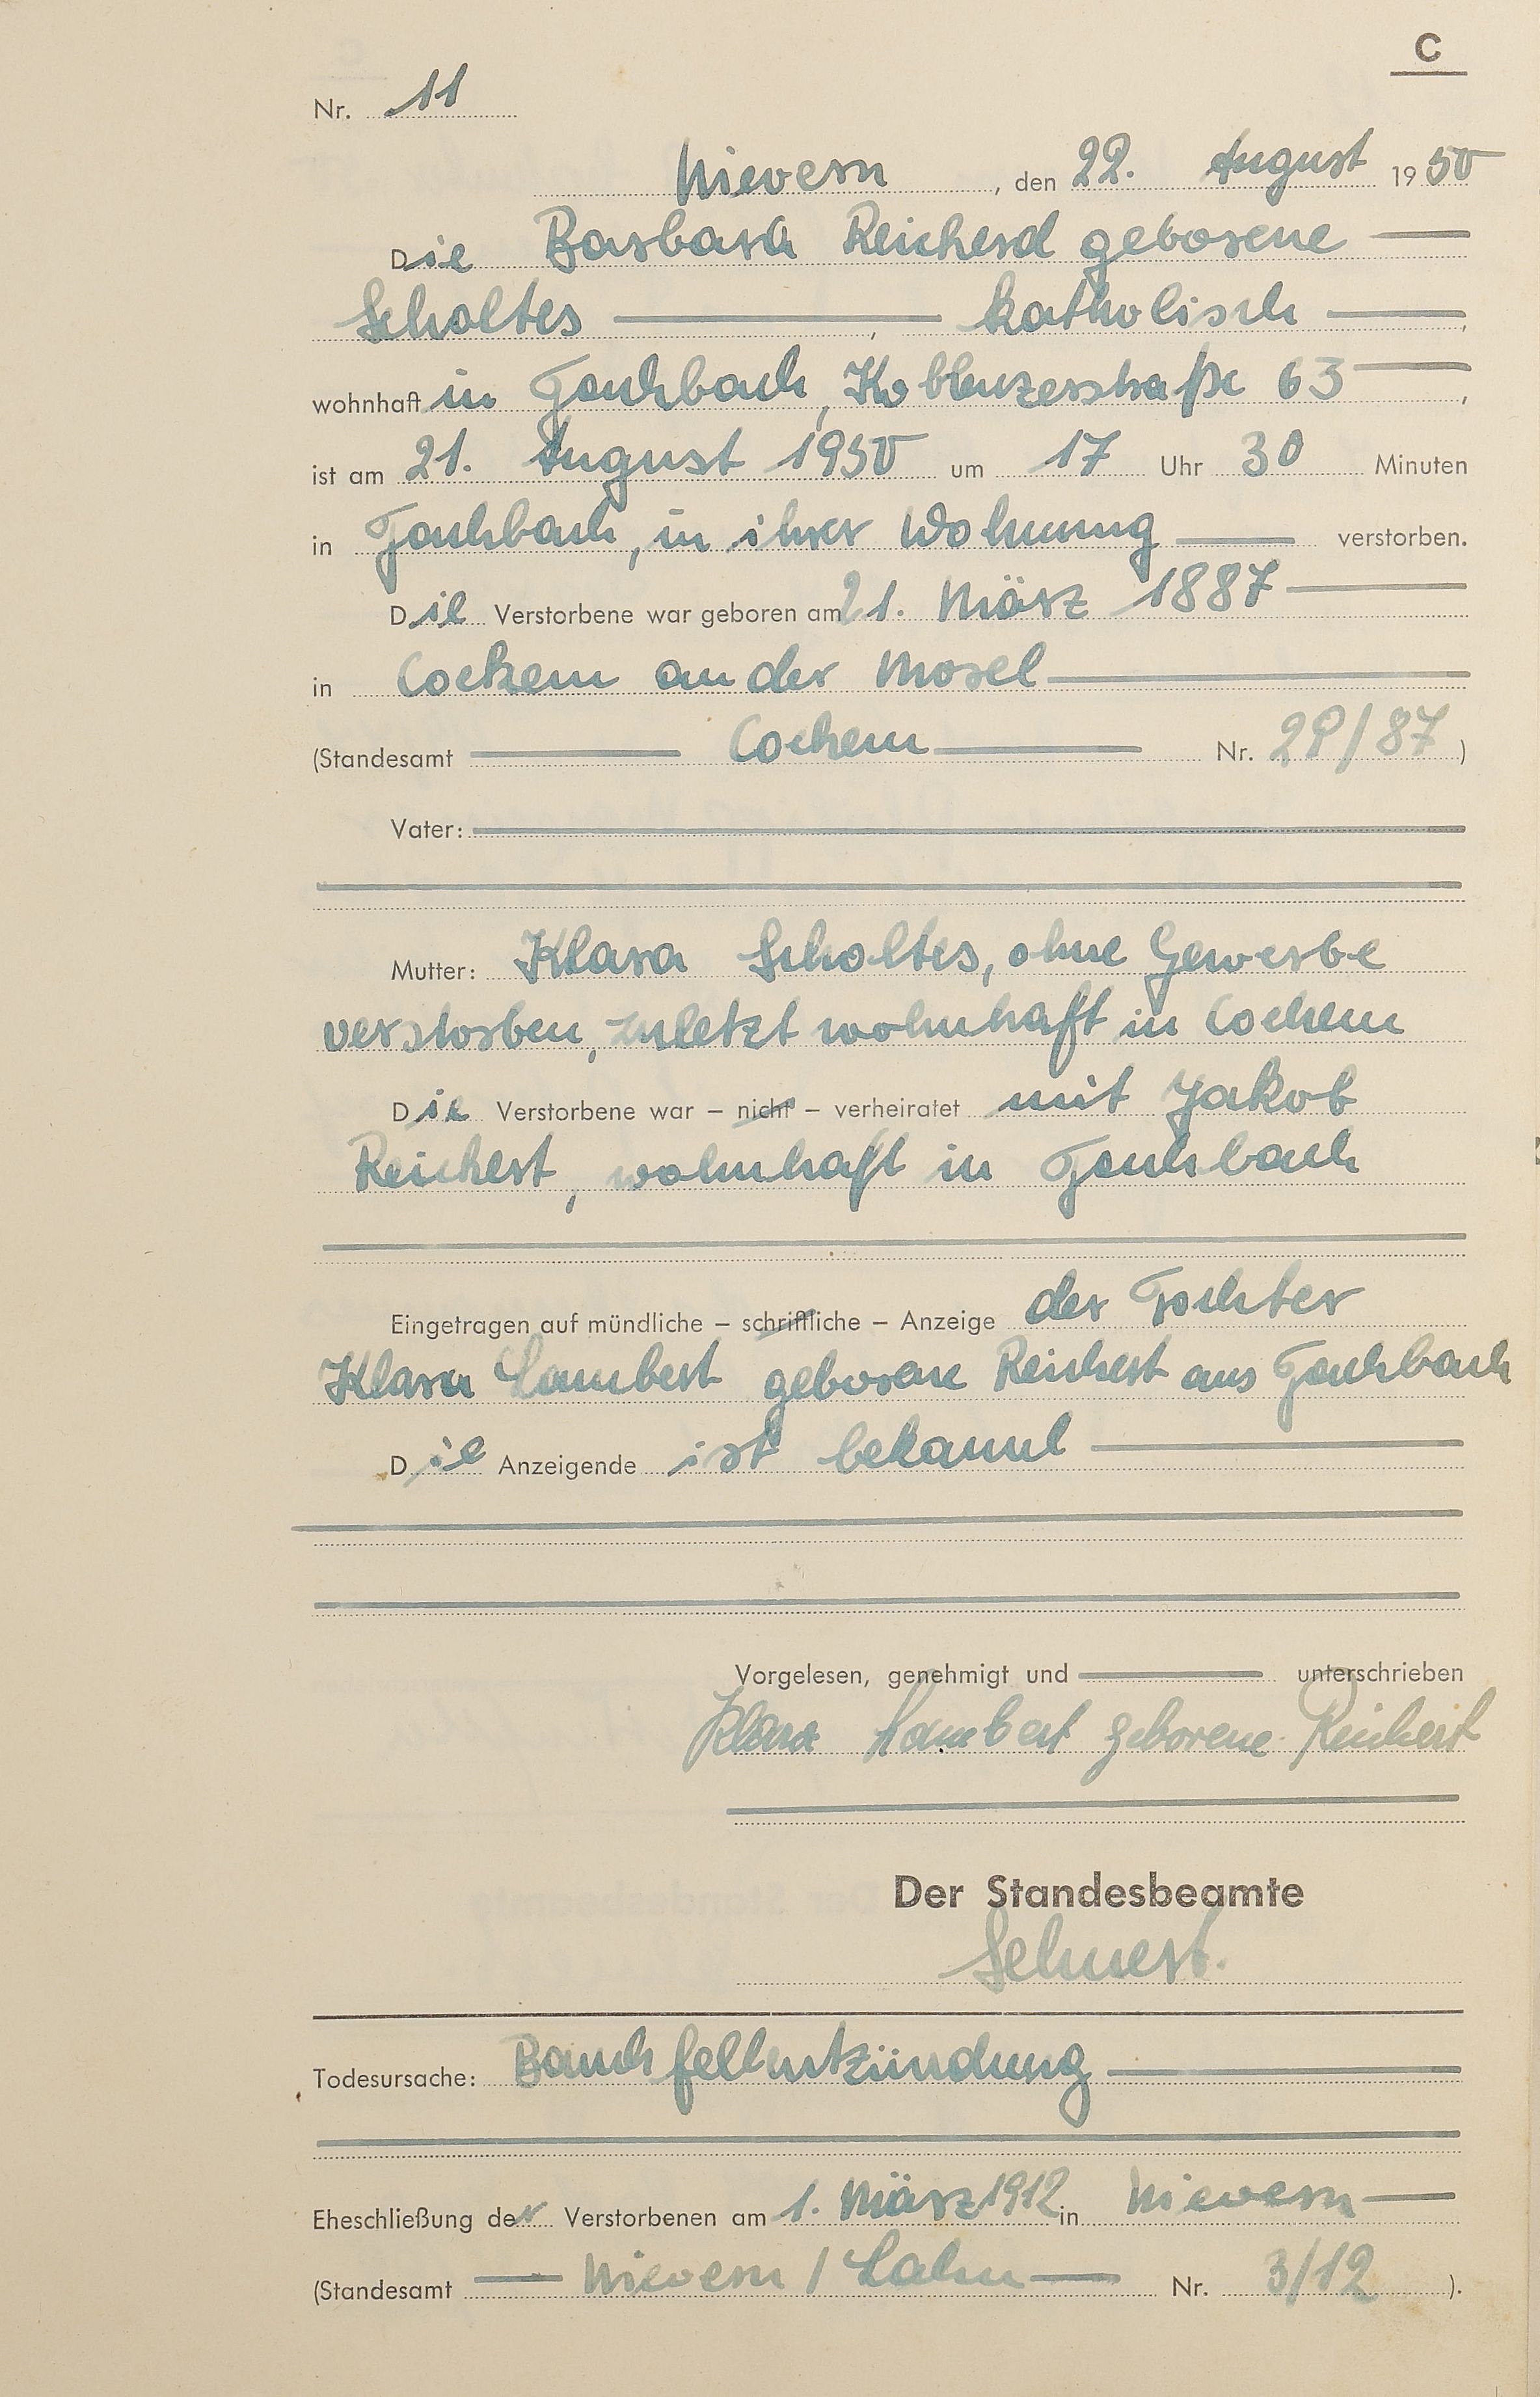 C
Nr. 11
Nievern, den 22. August 1950
Die Barbara Reicherd geborene
Scholtes, katholisch,
wohnhaft in Fachbach, Koblenzerstraße 63,
ist am 21. August 1950 um 17 Uhr 30 Minuten
in Fachbach, in ihrer Wohnung verstorben.
Die Verstorbene war geboren am 21. März 1887
in Cochem an der Mosel
(Standesamt Cochem Nr. 29/87)
Vater:
Mutter: Klara Scholtes, ohne Gewerbe
verstorben, zuletzt wohnhaft in Cochem
Die Verstorbene war – nicht – verheiratet mit Jakob
Reichert, wohnhaft in Fachbach
Eingetragen auf mündliche – schriftliche – Anzeige der Tochter
Klara Lambert geborene Reichert aus Fachbach
Die Anzeigende ist bekannt
Vorgelesen, genehmigt und unterschrieben
Klara Lambert geborene Reichert
Der Standesbeamte
Todesursache: Bauchfellentzündung
Eheschließung der Verstorbenen am 1. März 1912 in Nievern
(Standesamt Nievern / Lahn Nr. 3/12).